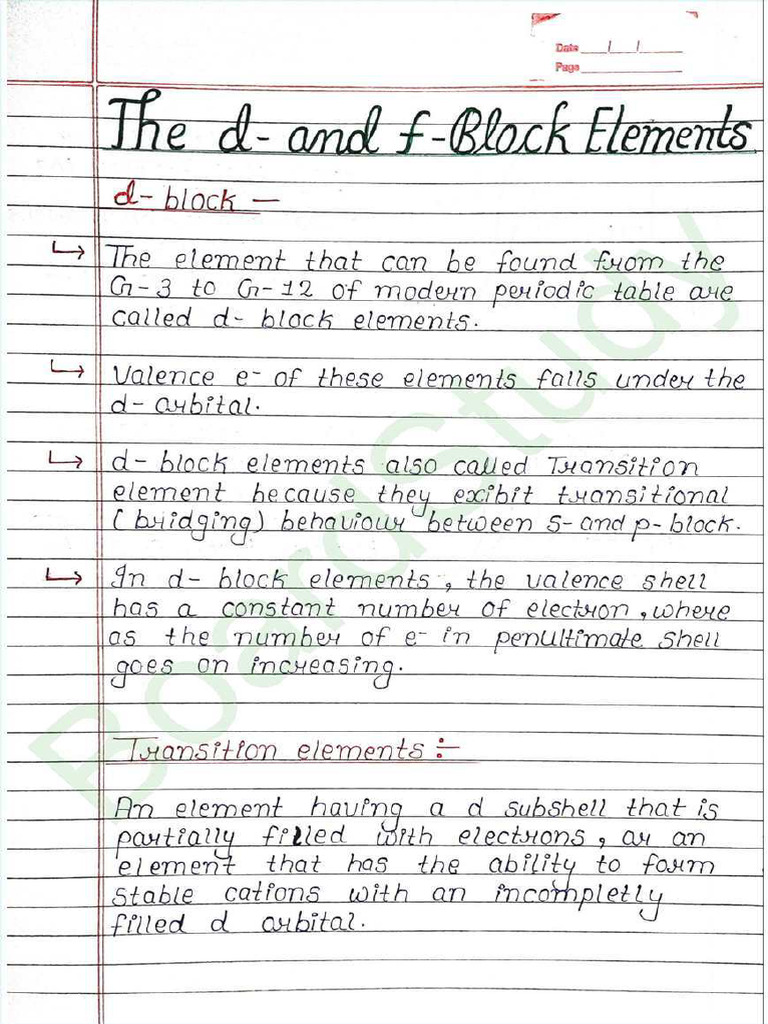 Date / /
Page
The d- and f-Block Elements
d- block —
↳ The element that can be found from the
Gr-3 to Gr-12 of modern periodic table are
called d- block elements.
↳ Valence e⁻ of these elements falls under the
d- orbital.
↳ d- block elements also called Transition
element because they exibit transitional
(bridging) behaviour between s- and p- block.
↳ In d- block elements, the valence shell
has a constant number of electron, where
as the number of e⁻ in penultimate shell
goes on increasing.
Transition elements :-
An element having a d subshell that is
partially filled with electrons, or an
element that has the ability to form
stable cations with an incompletly
filled d orbital.
BoardStudy